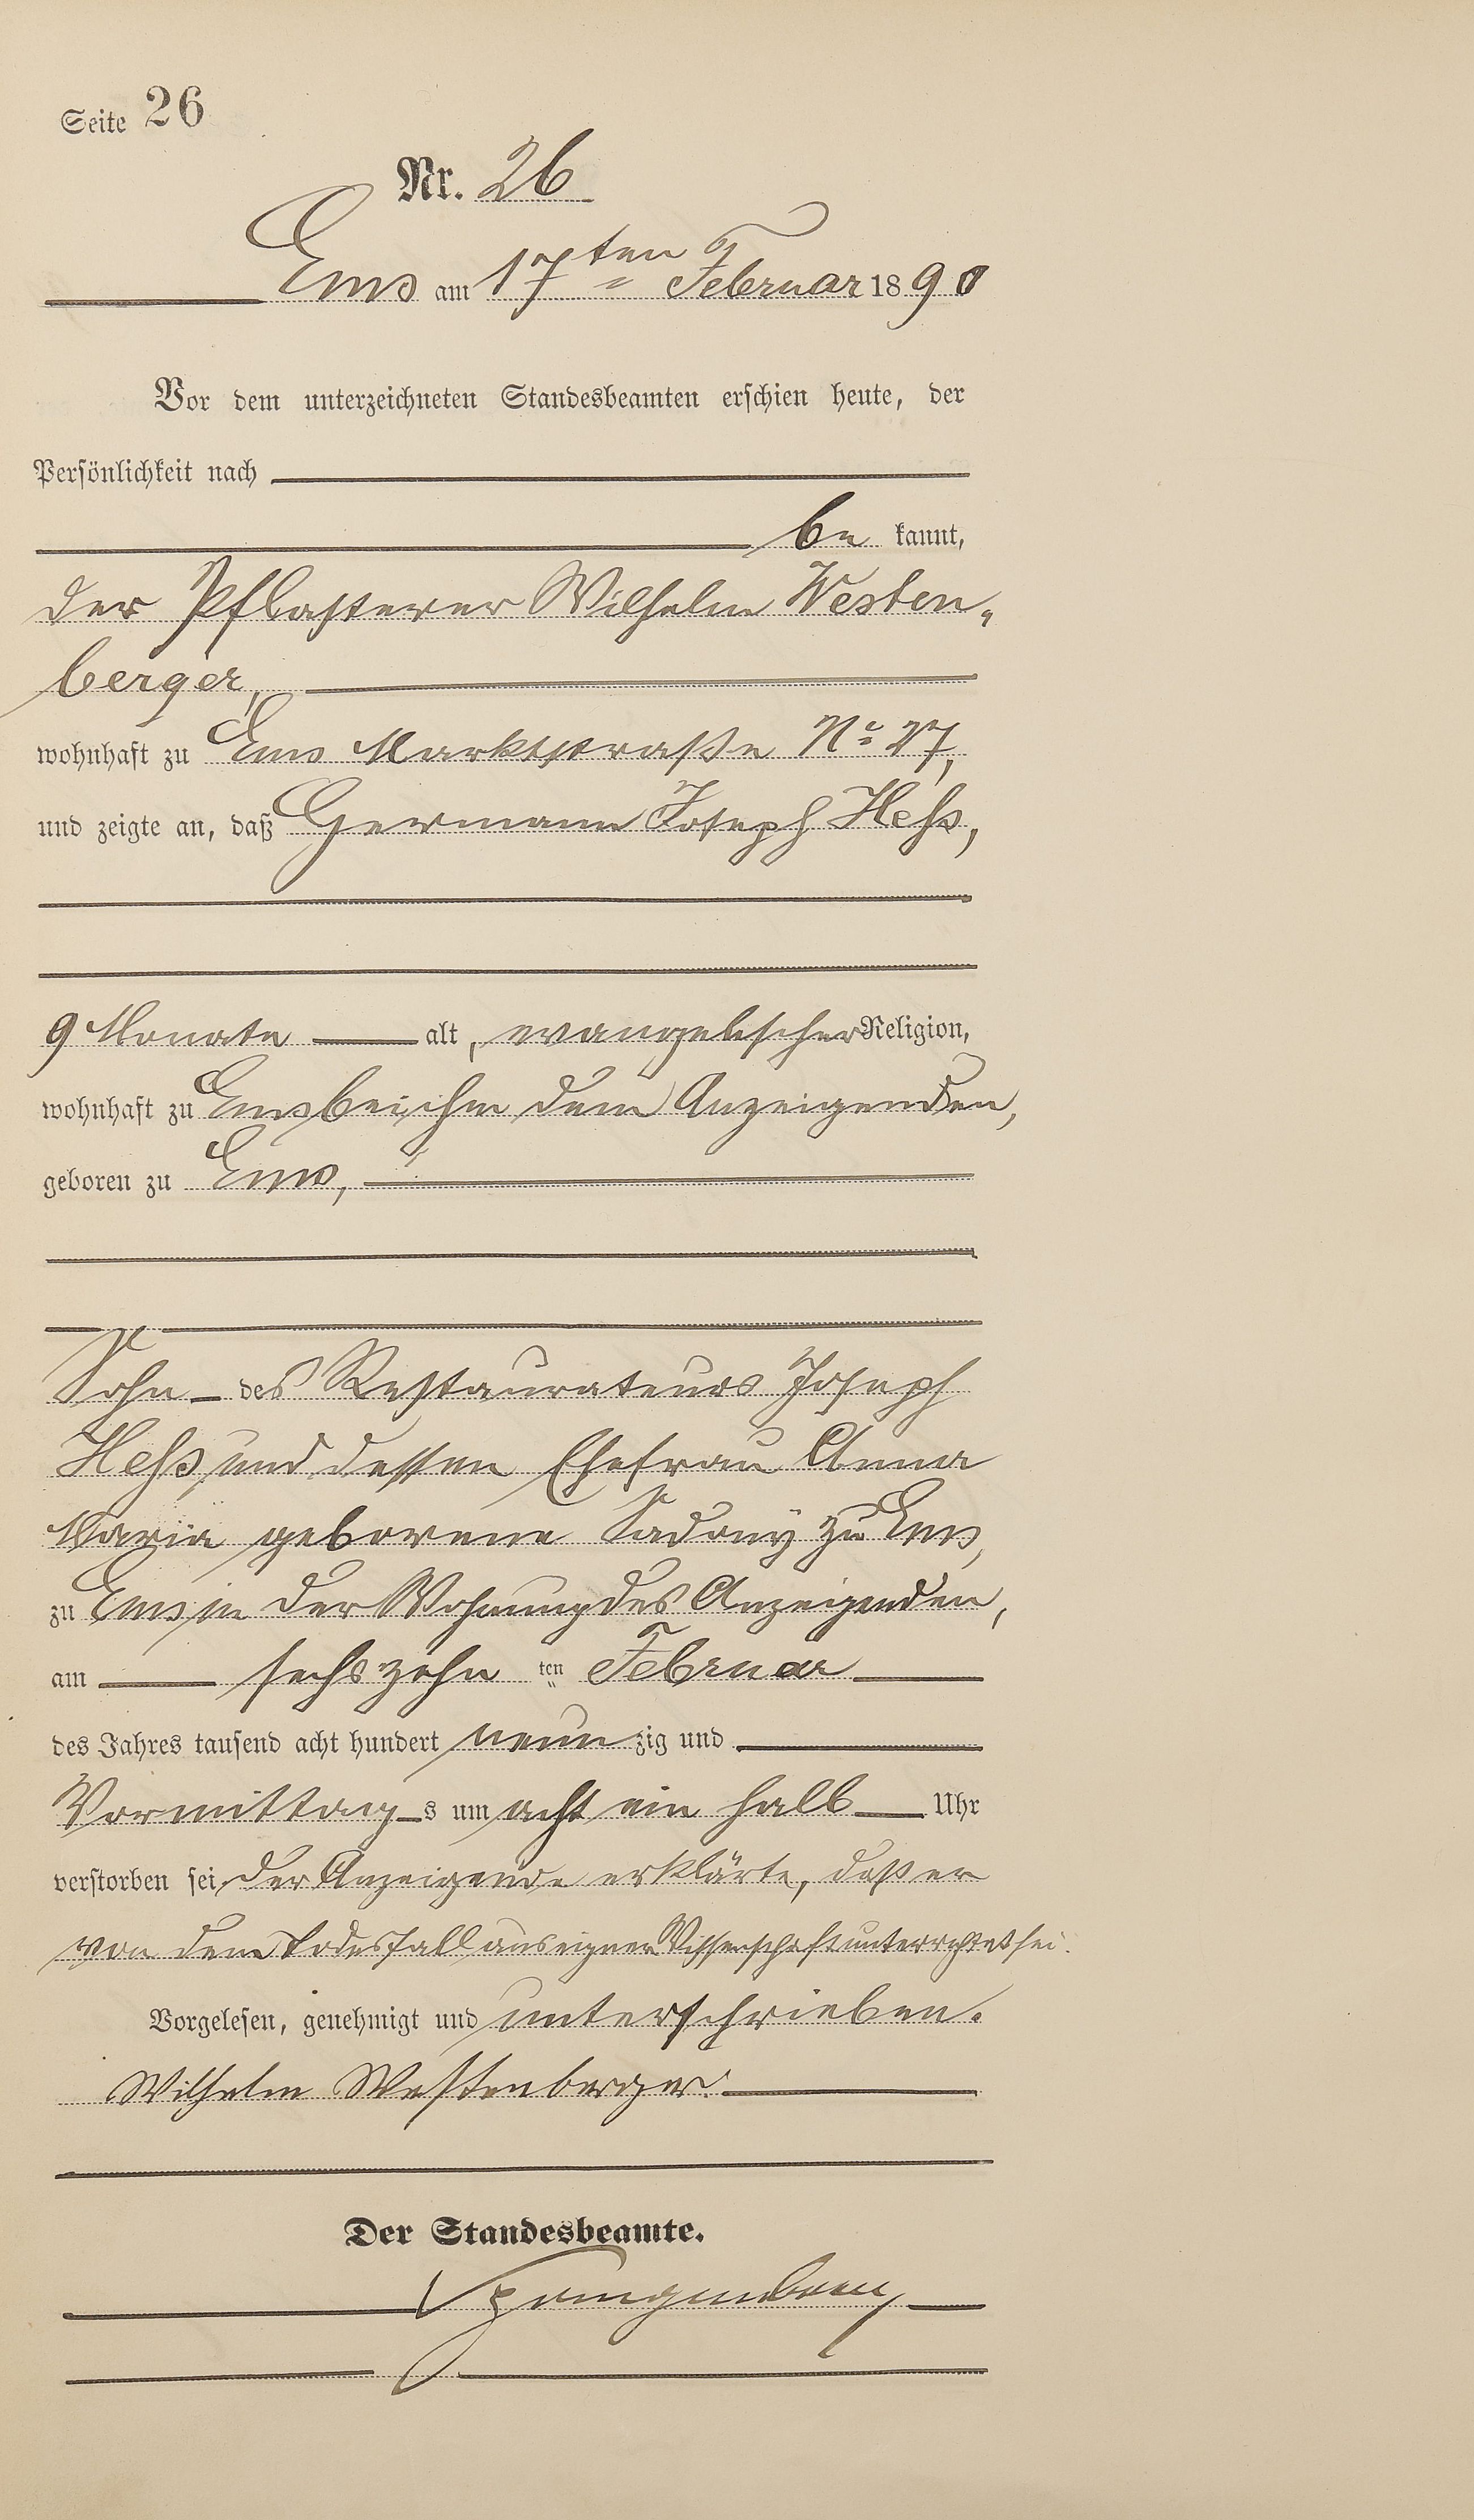 Seite 26
Nr. 26
Ems am 17ten Februar 1890
Vor dem unterzeichneten Standesbeamten erschien heute, der
Persönlichkeit nach
be kannt,
der Pflasterer Wilhelm Westen-
berger,
wohnhaft zu Ems Marktstraße No 27,
und zeigte an, daß Hermann Joseph Heß,
9 Monate alt, evangelischer Religion,
wohnhaft zu Ems bei ihm dem Anzeigenden,
geboren zu Ems,
Sohn des Restaurateurs Joseph
Heß und dessen Ehefrau Anna
Maria geborene Sadony zu Ems,
zu Ems in der Wohnung des Anzeigenden,
am sechszehn ten Februar
des Jahres tausend acht hundert neun zig und
Vormittag s um acht ein halb Uhr
verstorben sei, der Anzeigende erklärte, daß er
von dem Todesfall aus eigner Wissenschaft unterrichtet sei.
Vorgelesen, genehmigt und unterschrieben.
Wilhelm Westenberger.
Der Standesbeamte.